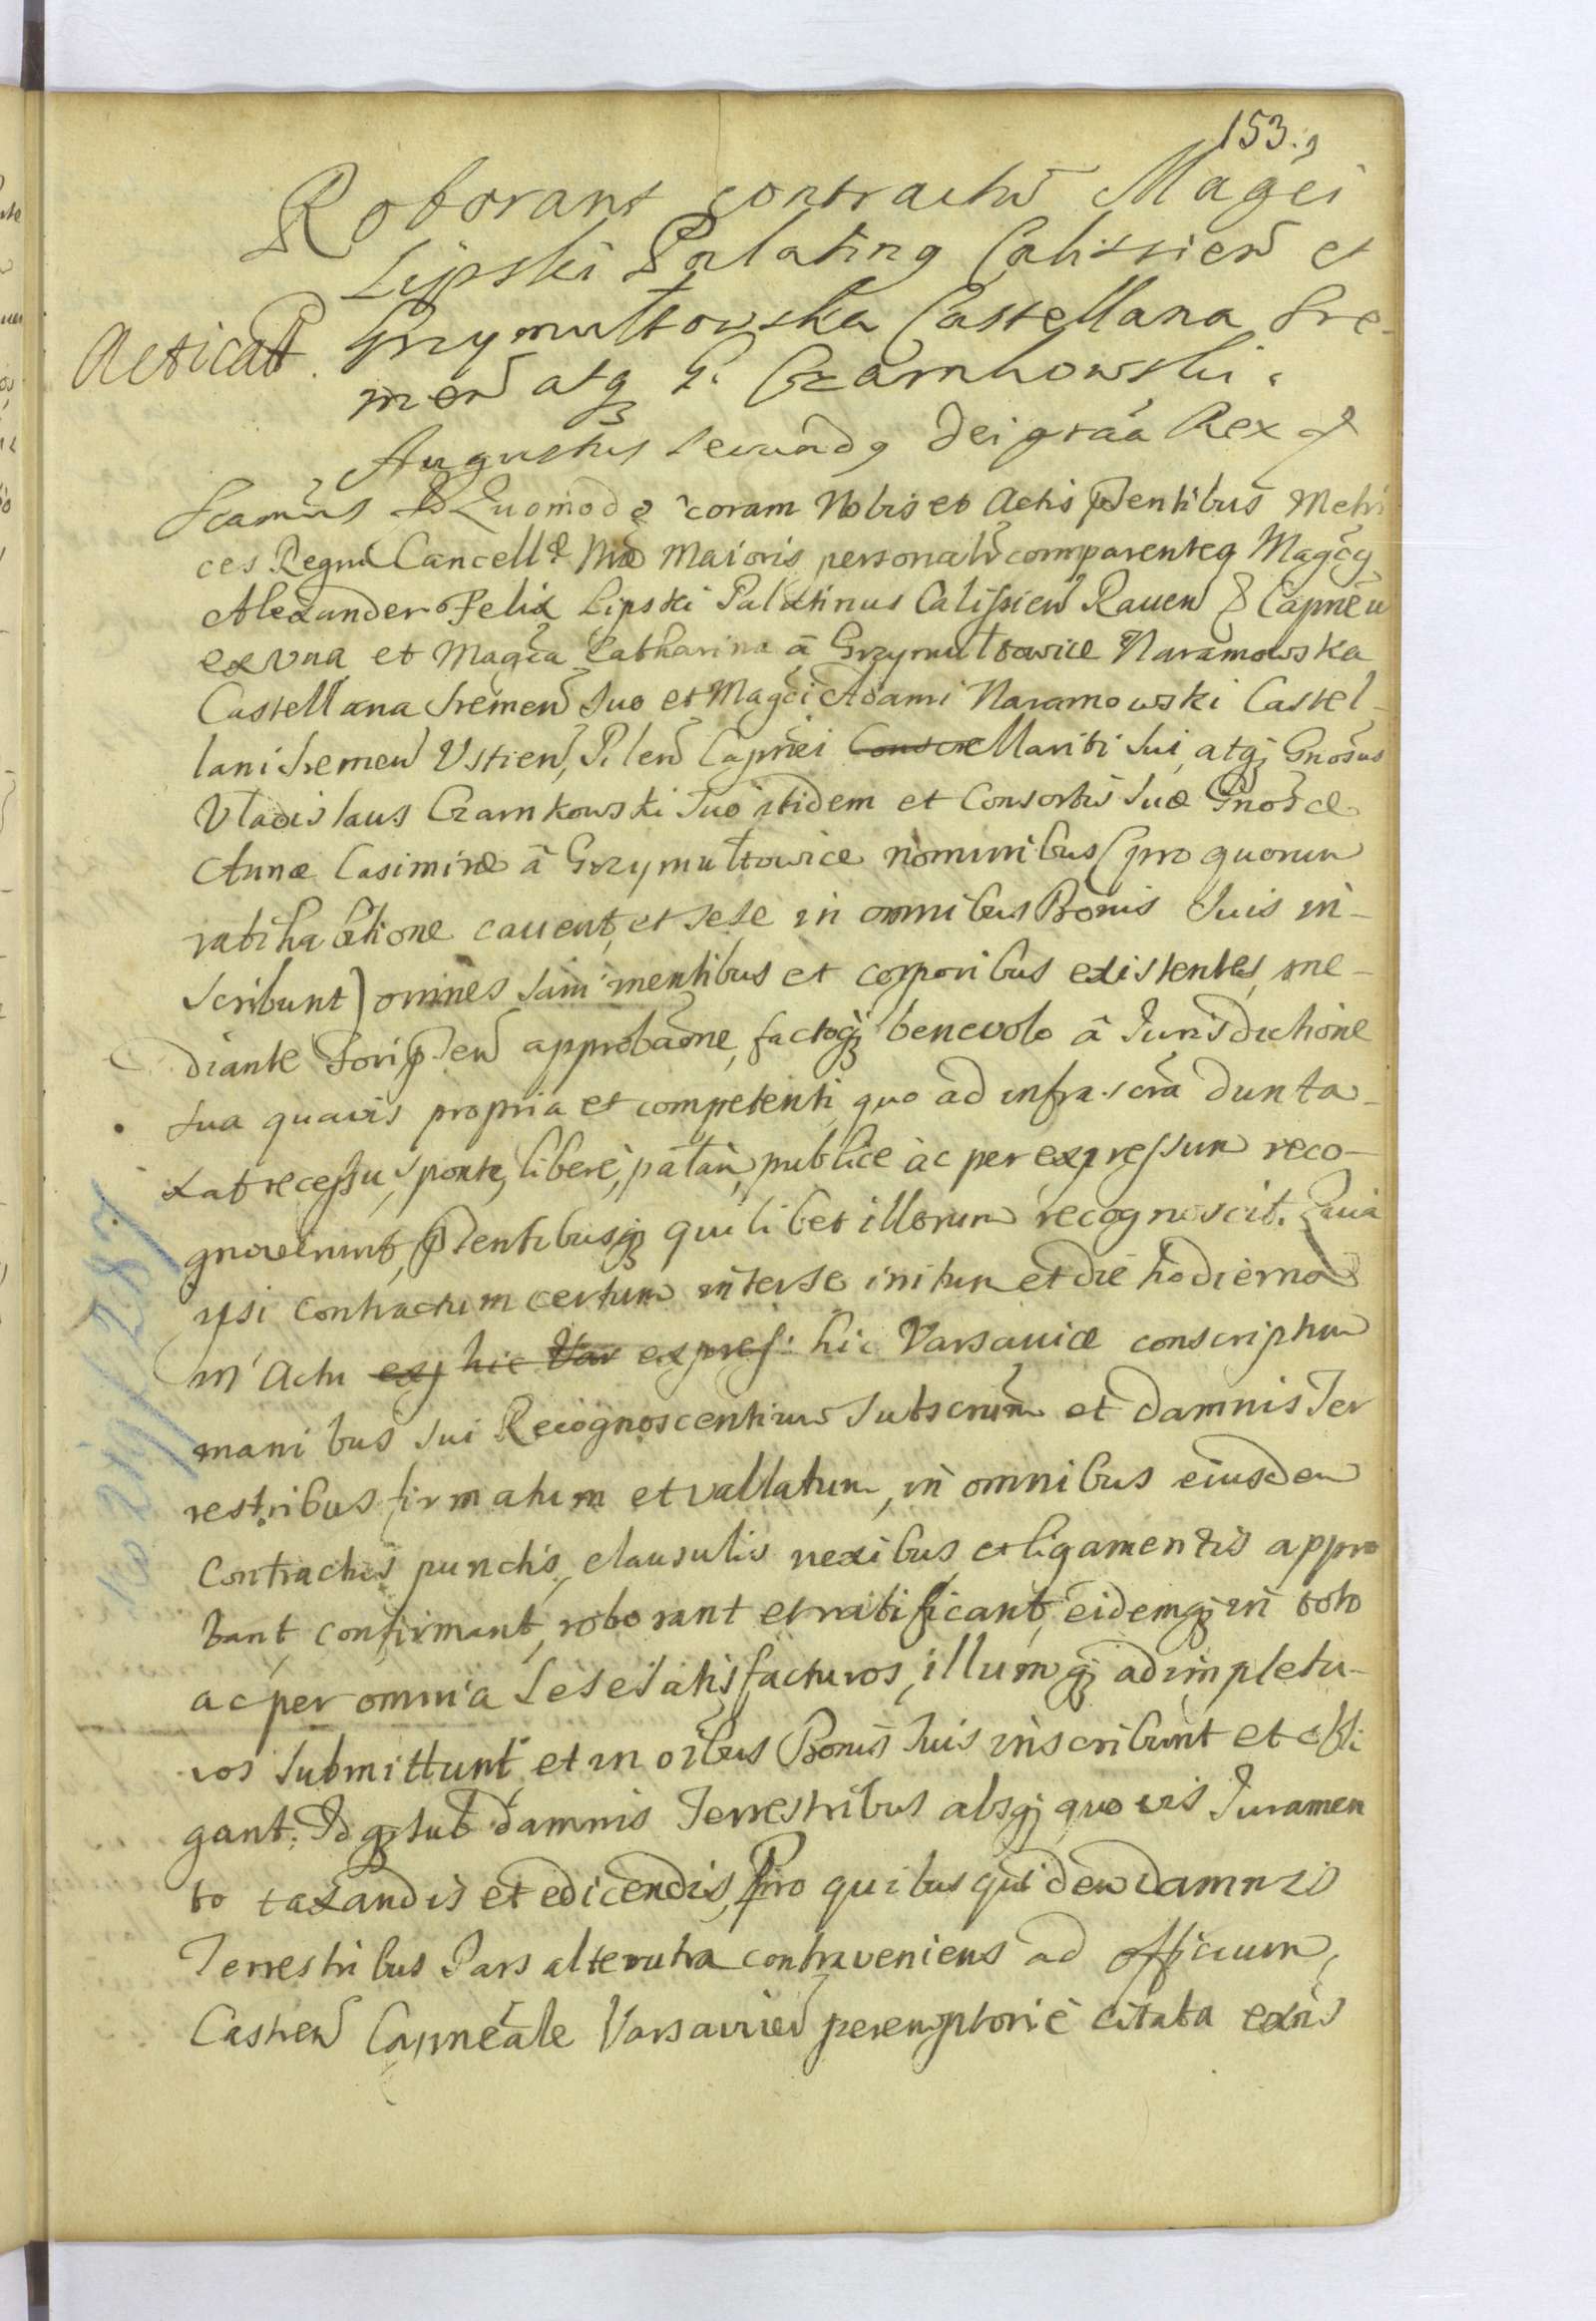 153.
Roborant contractũ Magci
Lipski Palatinq Calissień et
Acticat. Grzymułtowska Castellana Sre-
meń atq G. Czarnkowski.
Augustus Secundq Dei graã Rex
Scamus Quomodo coram Nobis et Actis pñtentibus Metri
ces Regni Cancellæ Mæ Maioris personalr̃ comparentes Magci
Alexander Felix Lipski Palatinus Calissień Raueń & Capneũ
ex vna et Magca Catharina â Grzymułtowice Naramowska
Castellana Sremeń Suo et Magci Adami Naramowski Castel-
lani Sremeń Vstień, Pileń Capnei Conscre Mariti Sui, atq̃ Gnosus
Vladislaus Czarnkowski Suo itidem et Consortis Suæ Gnosæ
Annæ Casimiræ â Grzymułtowice nominibus (pro quorum
ratihabitione cauent, et sese in omnibus Bonis Suis in-
scribunt) omnes sani mentibus et corporibus existentes, me-
diante approbãone, factoq̃ beneuolo â Jurisdictione
sua quavis propria et competenti, quo ad infra scrã dunta-
xat recessu, sponte, libere, palam, publice ac per expressum reco-
gnouerunt, pñtentibusq̃ quilibet illorum recognoscit. Quia
ipsi contractum certum inter se initum et die hodierna
in Actu exj hic Var expres: hic Varsauiæ conscriptum
manibus sui Recognoscentium Subscrũm et damnis Ter
restribus firmatum et vallatum, in omnibus eiusdem
Contractus punctis, clausulis nexibus, et ligamentis appro
bant, confirmant, roborant et ratificant, eidemq̃ in toto
ac per omnia Sese satisfacturos, illumq̃ adimpletu-
ros submittunt et in oĩbus Bonis Suis inscribunt et obli
gant. Idq̃ sub damnis Terrestribus absq̃ quovis Juramen
to taxandis et edicendis, Pro quibus quidem damnis
Terrestribus Pars alterutra contraveniens ad officium,
Castreń Capneãle Varsavień peremptoriè citata